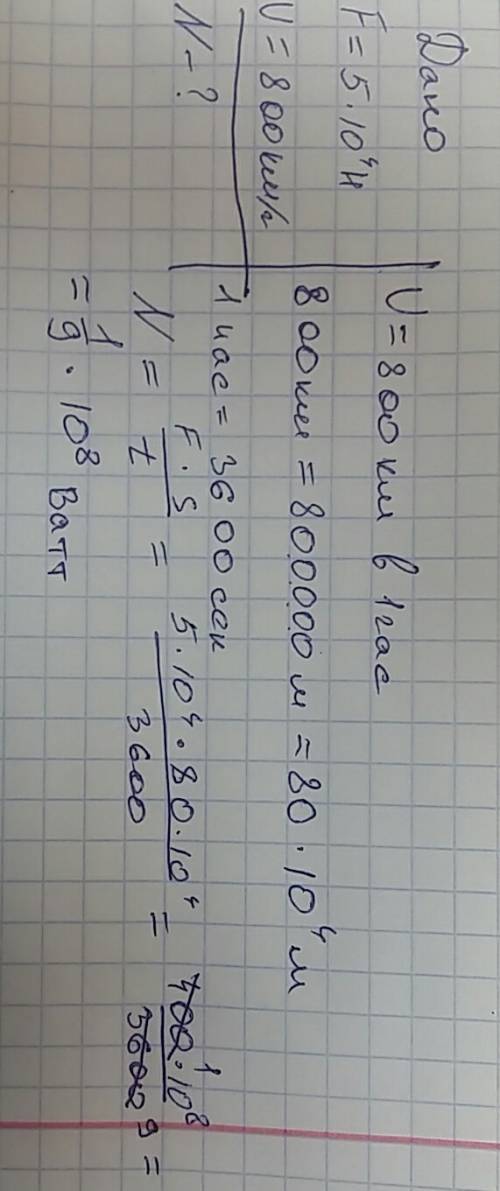 Дано
F = 5·10⁴ Н
U = 800 км/г
N - ?
U = 800 км в 1 час
800 км = 800000 м = 80·10⁴ м
1 час = 3600 сек
N = F·S / t = 5·10⁴·80·10⁴ / 3600 = 400 1·10⁸ / 3600 9 =
= 1/9 · 10⁸ Ватт